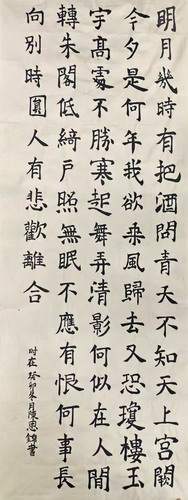 明月幾時有把酒問青天不知天上宮闕
今夕是何年我欲乘風歸去又恐瓊樓玉
宇髙處不勝寒起舞弄清影何似在人間
轉朱閣低綺戶照無眠不應有恨何事長
向別時圓人有悲歡離合
时在癸卯冬月陳恩書